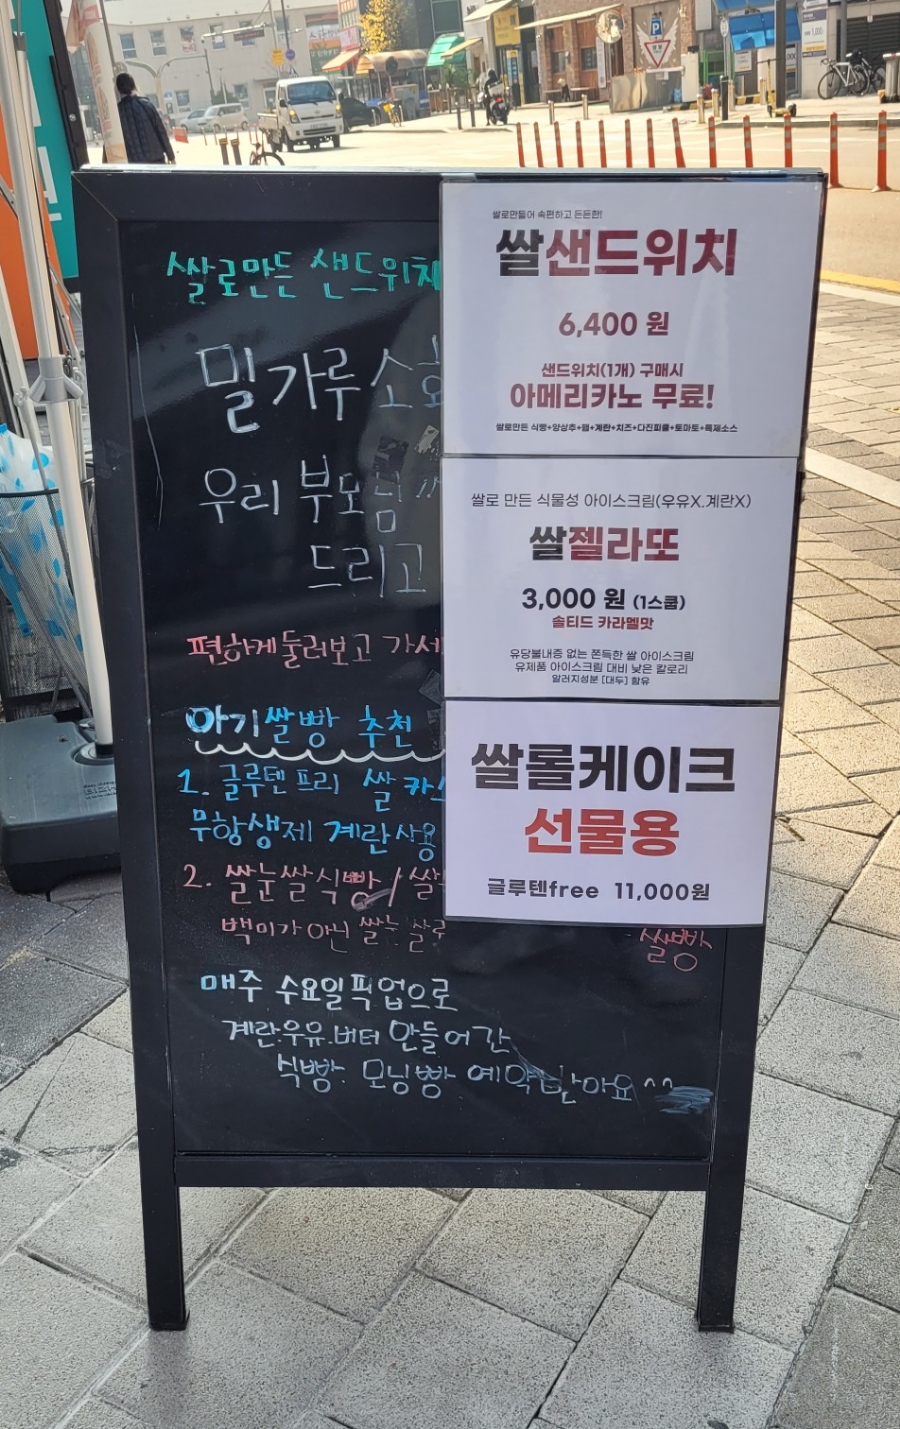 쌀로만든 샌드위치
밀가루 소화
우리 부모님
드리고
편하게 둘러보고 가세
아기쌀빵 추천
1. 글루텐프리 쌀 카스
무항생제 계란사용
2. 쌀눈쌀식빵 / 쌀
백미가 아닌 쌀눈 쌀로
쌀빵
매주 수요일픽업으로
계란.우유.버터 안들어간
식빵. 모닝빵 예약받아요^^
쌀로만들어 속편하고 든든한!
쌀샌드위치
6,400 원
샌드위치(1개) 구매시
아메리카노 무료!
쌀로만든 식빵+양상추+햄+계란+치즈+다진피클+토마토+특제소스
쌀로 만든 식물성 아이스크림(우유X.계란X)
쌀젤라또
3,000 원 (1스쿱)
솔티드 카라멜맛
유당불내증 없는 쫀득한 쌀 아이스크림
유제품 아이스크림 대비 낮은 칼로리
알러지성분 [대두] 함유
쌀롤케이크
선물용
글루텐free 11,000원